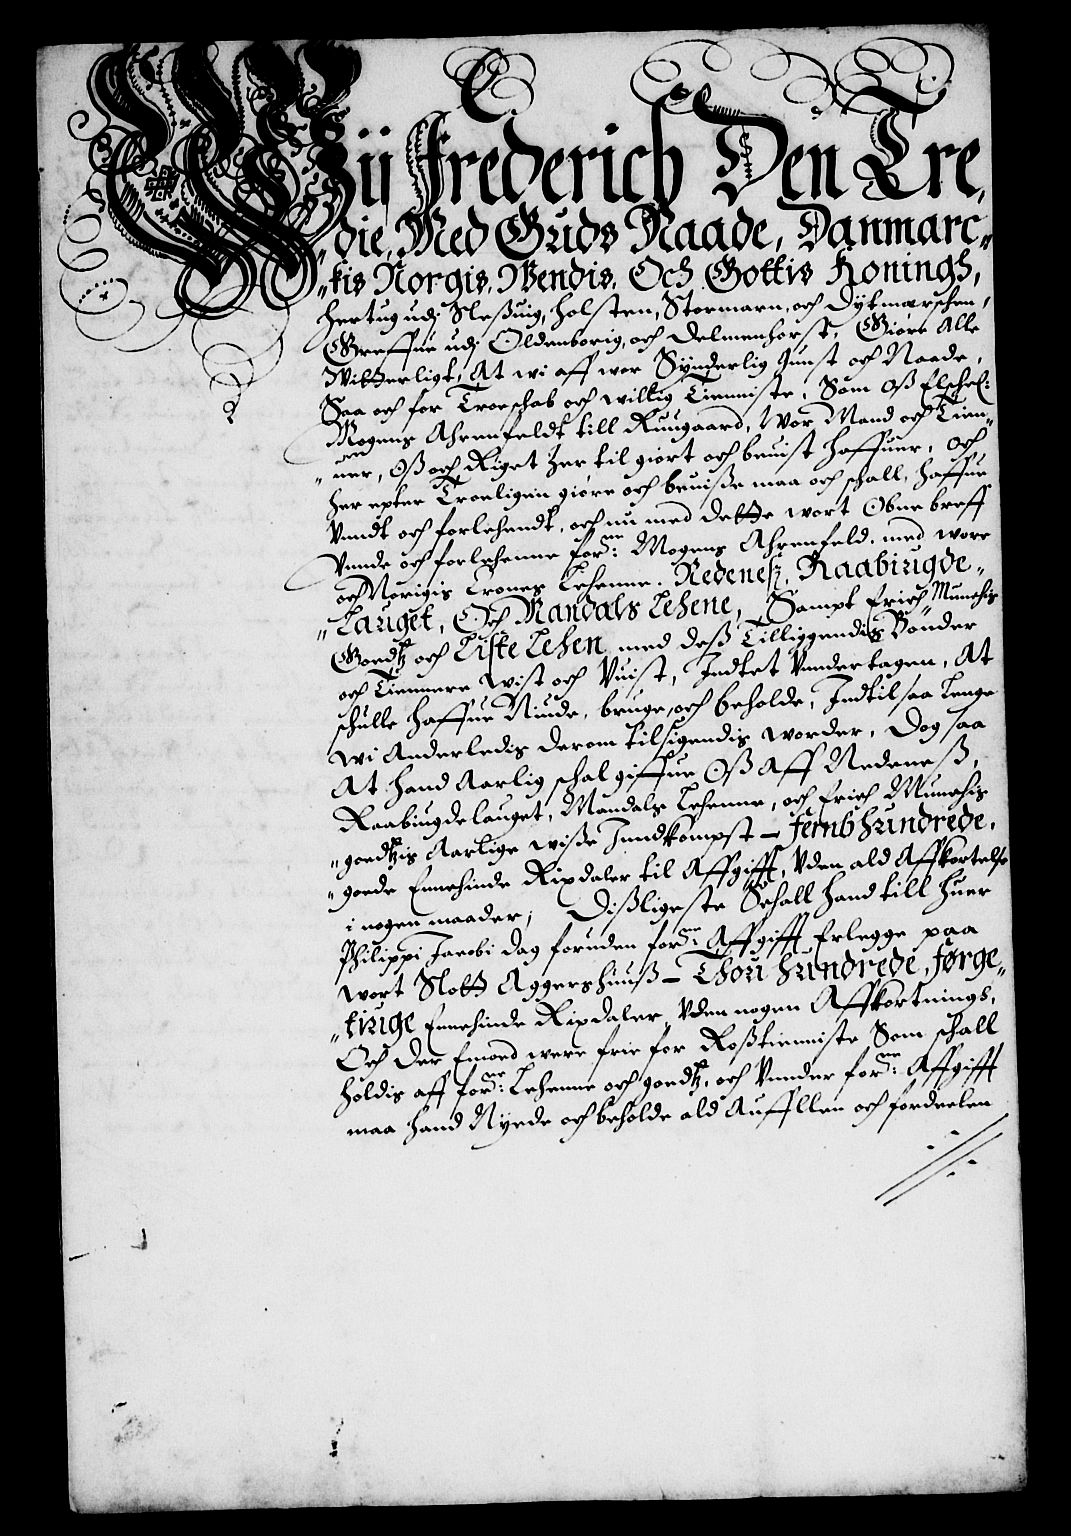 Wii Frederich Den Tre,
"die, Med Guds Naade, Danmarc"
"kis Norgis, Wendis, Och Gottis Konings,
Hertug udj Sleßuig, Holsten, Stormarn, och Dytmarschen,
Greffue udj Oldenborig, och Delmenhorst, Giøre Alle
Witterligt, At wi aff wor Synderlig Gunst och Naade,
Saa och for Troeschab och willig Tienniste, Som Oß Elschel:
Mogens Ahrenfeldt till Ruugaard, Wor Mand och Tien"
"ner, Oß och Riget her til giort och beuist haffuer, och
her epter Troeligen giøre och beuiße maa och schall, haffue
Vundt och forlehendt, och nu med dette wort Obne breff
Vnde och forlehenne for:ne Mogens Ahrenfeld, med wore
och Norigis Crones Lehenne. Nedeneß, Raabiugde"
"Lauget, Och Mandals Lehene, Sampt Erich Munchis
Goedtz och Liste Lehen med deß Tilliggendis Bønder
och Tiennere Wist och Vuist, Indtet Vndertagen, At
schulle haffue Niude, bruge, och beholde, Indtil saa lenge
wi Anderledis derom tilsigendis worder, Dog saa
At hand Aarlig schal giffue Oß Aff Nedeneß,
Raabiugdelauget, Mandals Lehenne, och Erich Munchis
"goedtzis Aarlige wiße Inndkompst – Femb Hundrede,
"goede Ennchinde Rixdaler til Affgifft, Vden ald Affkortelse
i nogen maader; Dißligeste Schall hand till huer
Philippi Jacobi dag foruden for:ne Affgifft Erlegge paa
wort Slott Aggershuuß – Thou Hundrede, Førge"
"tiuge Ennchinde Rixdaler, Vden nogen Affkortnings,
Och der Emoed were frie for Roßtienniste Som schall
holdis aff for:ne Lehenne och goedtz, och Vnder for:ne Affgifft
maa hand Nyede och beholde ald Auffllen och fordeelen